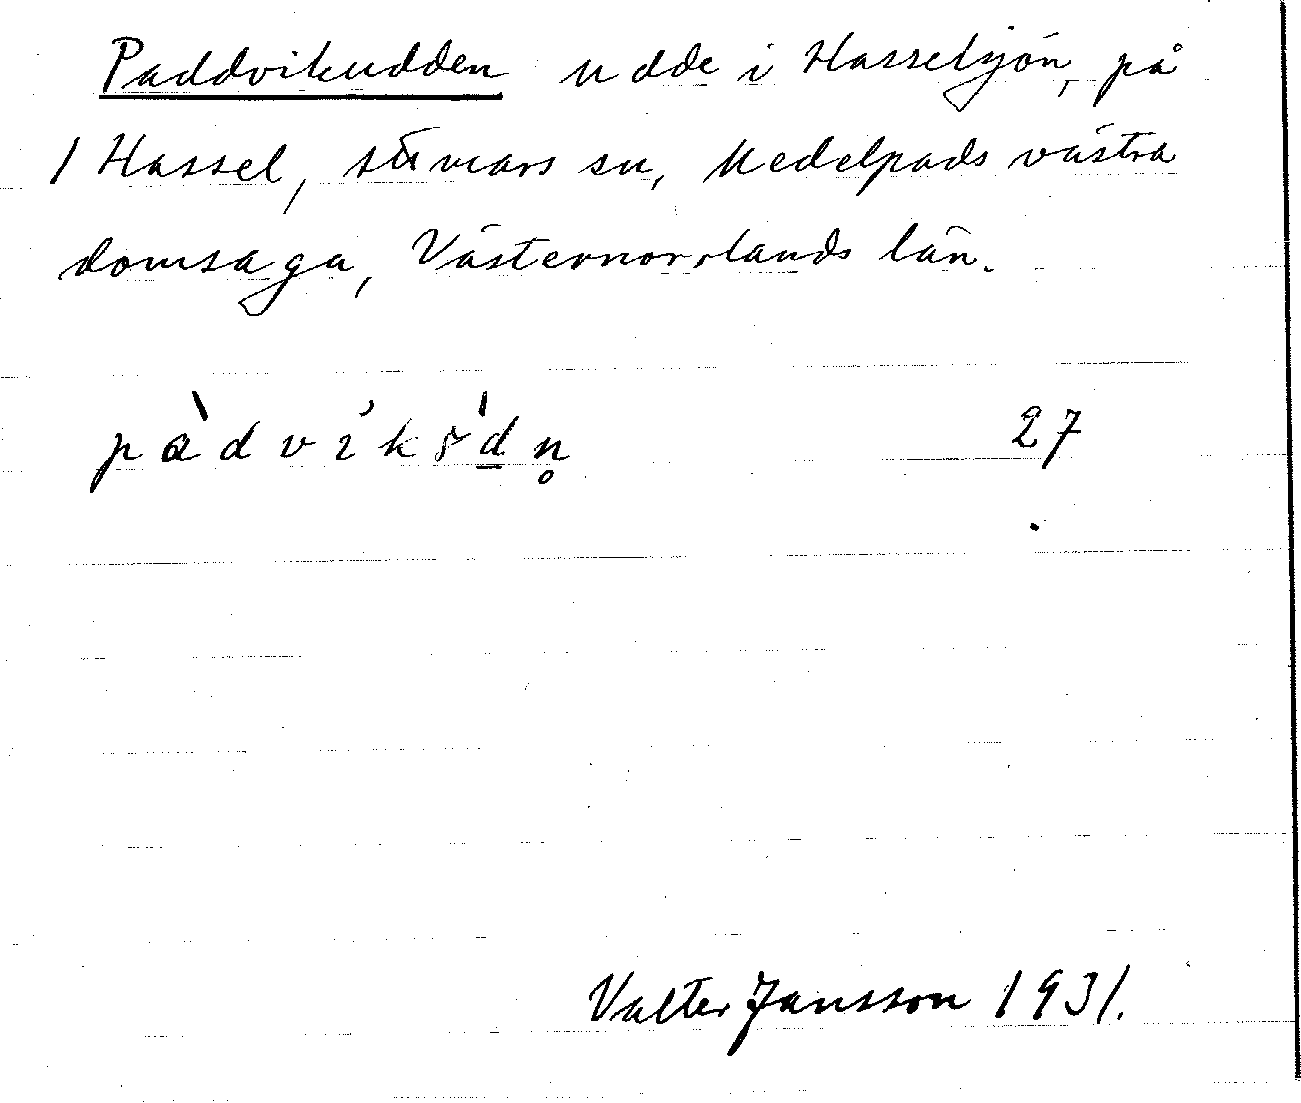 Paddvikudden udde i Hasselsjön, på
1 Hassel, Stivars sn, Medelpads västra
domsaga, Västernorrlands län.
27
Valter Jansson 1931.